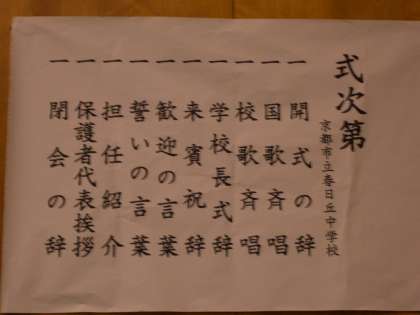 式次第
京都市立春日丘中学校
一 開式の辞
一 国歌斉唱
一 校歌斉唱
一 学校長式辞
一 来賓祝辞
一 歓迎の言葉
一 誓いの言葉
一 担任紹介
一 保護者代表挨拶
一 閉会の辞